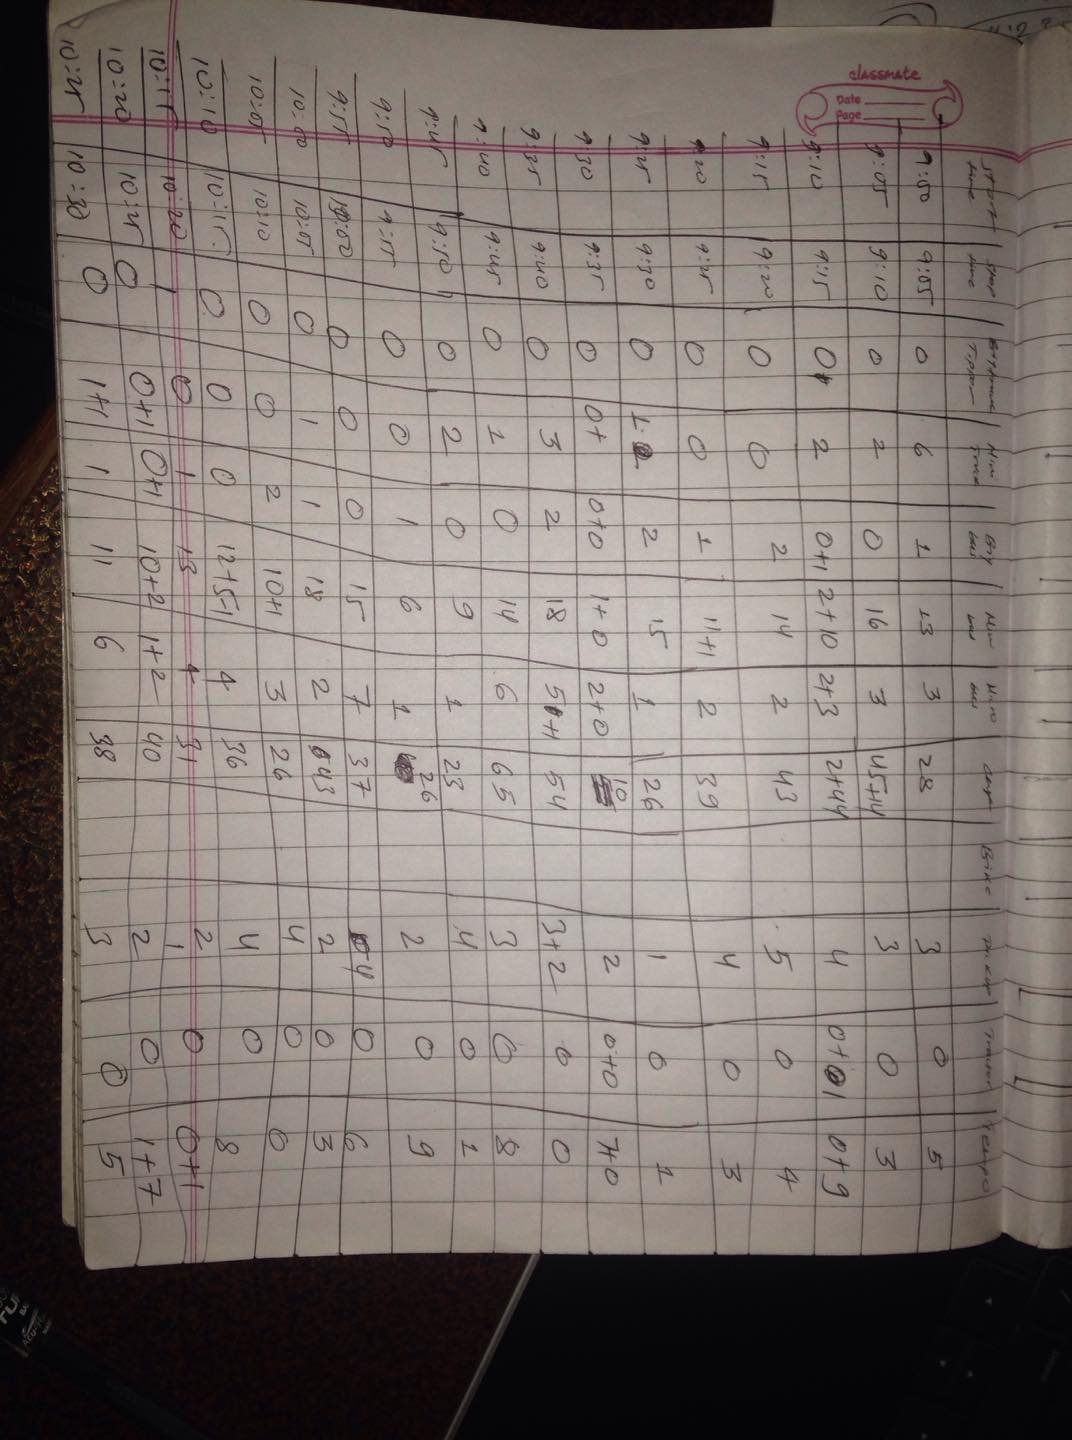 classmate
Date
Page
start time | stop time | Tipper | Mini truck | Big bus | Mini bus | Micro bus | Car | Bike | Pickup | Tractor | Tempo
9:00 | 9:05 | 0 | 6 | 1 | 13 | 3 | 28 | 3 | 0 | 5
9:05 | 9:10 | 0 | 2 | 0 | 16 | 3 | 45+14 | 3 | 0 | 3
9:10 | 9:15 | 0 | 2 | 0+1 | 2+10 | 2+3 | 2+44 | 4 | 0+1 | 0+9
9:15 | 9:20 | 0 | 0 | 2 | 14 | 2 | 43 | 5 | 0 | 4
9:20 | 9:25 | 0 | 0 | 1 | 11+1 | 2 | 39 | 4 | 0 | 3
9:25 | 9:30 | 0 | 1 | 2 | 15 | 1 | 26 | 1 | 0 | 1
9:30 | 9:35 | 0 | 0+ | 0+0 | 1+0 | 2+0 | 10 | 2 | 0+0 | 7+0
9:35 | 9:40 | 0 | 3 | 2 | 18 | 5+1 | 54 | 3+2 | 0 | 0
9:40 | 9:45 | 0 | 1 | 0 | 14 | 6 | 65 | 3 | 0 | 8
9:45 | 9:50 | 0 | 2 | 0 | 9 | 1 | 23 | 4 | 0 | 1
9:50 | 9:55 | 0 | 0 | 1 | 6 | 1 | 26 | 2 | 0 | 9
9:55 | 10:00 | 0 | 0 | 0 | 15 | 7 | 37 | 4 | 0 | 6
10:00 | 10:05 | 0 | 1 | 1 | 18 | 2 | 43 | 2 | 0 | 3
10:05 | 10:10 | 0 | 0 | 2 | 10+1 | 3 | 26 | 4 | 0 | 0
10:10 | 10:15 | 0 | 0 | 0 | 12+5-1 | 4 | 36 | 4 | 0 | 8
10:15 | 10:20 | 1 | 0 | 1 | 13 | 4 | 31 | 2 | 0 | 0+1
10:20 | 10:25 | 0 | 0+1 | 0+1 | 10+2 | 1+2 | 40 | 2 | 0 | 1+7
10:25 | 10:30 | 0 | 1+1 | 1 | 11 | 6 | 38 | 3 | 0 | 5